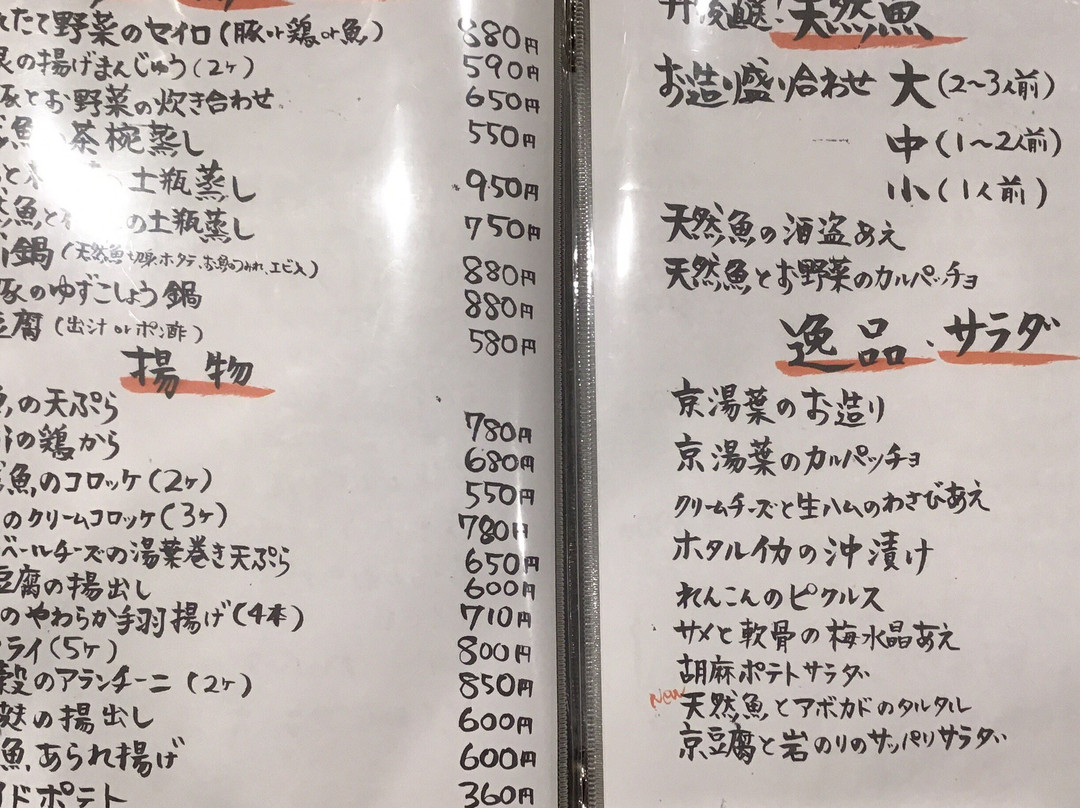 たて野菜のセイロ(豚or鶏or魚) 880円
の揚げまんじゅう(2ヶ) 590円
豚とお野菜の炊き合わせ 650円
魚 茶椀蒸し 550円
と 土瓶蒸し 950円
魚と の土瓶蒸し 750円
鍋(天然魚 切身、ホタテ、お魚のつみれ、エビ入) 880円
豚のゆずこしょう鍋 880円
豆腐(出汁orポン酢) 580円
揚物
の天ぷら 780円
の鶏から 680円
魚のコロッケ(2ヶ) 550円
のクリームコロッケ(3ヶ) 780円
ベールチーズの湯葉巻き天ぷら 650円
豆腐の揚出し 600円
のやわらか手羽揚げ(4本) 710円
フライ(5ヶ) 800円
穀のアランチーニ(2ヶ) 850円
麩の揚出し 600円
魚あられ揚げ 600円
ドポテト 360円
丹後直送!天然魚
お造り盛り合わせ 大(2〜3人前)
中(1〜2人前)
小(1人前)
天然魚の酒盗あえ
天然魚とお野菜のカルパッチョ
逸品・サラダ
京湯葉のお造り
京湯葉のカルパッチョ
クリームチーズと生ハムのわさびあえ
ホタルイカの沖漬け
れんこんのピクルス
サメと軟骨の梅水晶あえ
胡麻ポテトサラダ
New 天然魚とアボカドのタルタル
京豆腐と岩のりのサッパリサラダ